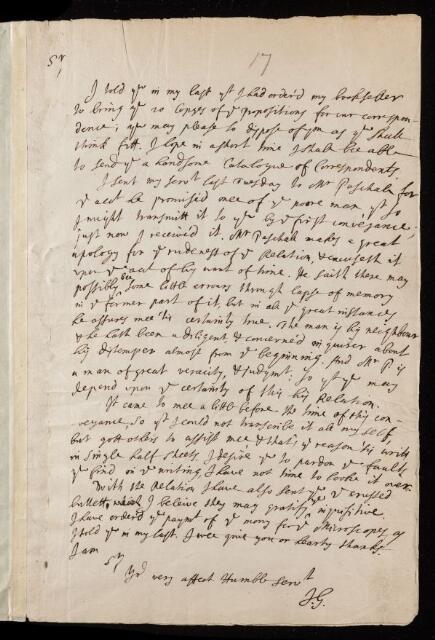 17
Sr
I told yu in my last yt I had orderd my bookseller
to bring yu 20 copyes of ye propositions for our correspon
dence; yu may please to dispose of ym as yu shall
think fitt. I hope in a short time I shall be able
to send yu a handsome Catalogue of Correspondents.
I sent my servt last Tuesday to Mr Paschall for
ye acct he promised mee of ye poore man, yt so
I might transmitt it to yu by ye first conveyance;
just now I received it. Mr Paschall makes a great
apology for ye rudeness of ye Relation, & causeth it
upon ye acct of his want of time. He saith there may
possibly bee some little errours through lapse of memory
in ye former part of it, but in all ye great instances
he assures mee tis certainly true. The man is his neighbour
& he hath been a diligent & concerned inquirer about
his distemper almost from ye beginning. And Mr P is
a man of great veracity, & judgmt; so yt yu may
depend upon ye certainty of this his Relation.
It came to mee a little before the time of this con-
veyance, so yt I could not transcribe it all my self,
but gott others to assist mee, & that's ye reason tis writt
in single half sheets. I desire yu to pardon ye faults,
yu find in ye writing, I have not time to looke it over.
With the Relation I have also sent yu ye crusted
bullett, I beleive they may gratify ye inquisitive
I have orderd ye paymt of ye mony for ye Microscopes as
I told yu in my last. I wee give you or hearty thanks.
I am
Sr
Yor very affect Humble Servt
J.G.